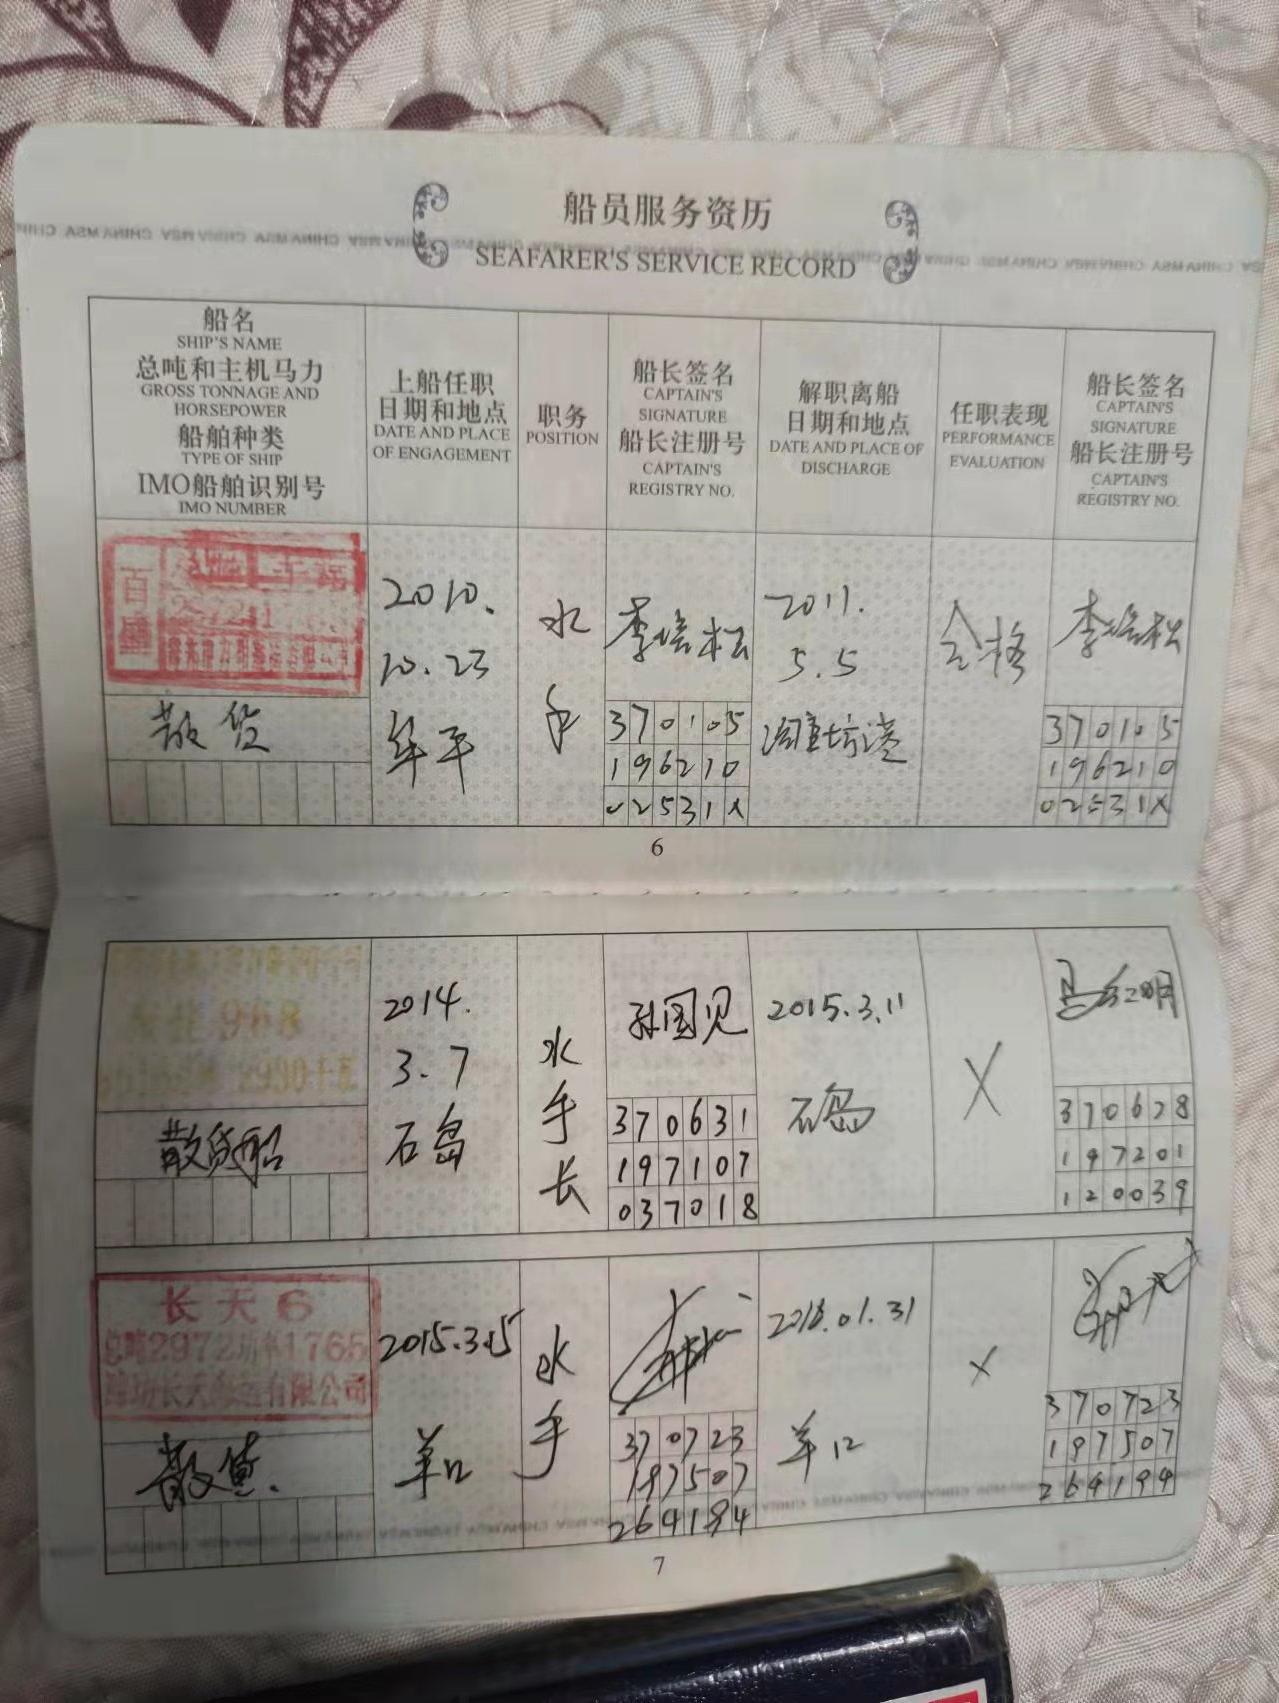 船员服务资历
SEAFARER'S SERVICE RECORD
船名
SHIP'S NAME
总吨和主机马力
GROSS TONNAGE AND
HORSEPOWER
船舶种类
TYPE OF SHIP
IMO船舶识别号
IMO NUMBER
上船任职
日期和地点
DATE AND PLACE
OF ENGAGEMENT
职务
POSITION
船长签名
CAPTAIN'S
SIGNATURE
船长注册号
CAPTAIN'S
REGISTRY NO.
解职离船
日期和地点
DATE AND PLACE OF
DISCHARGE
任职表现
PERFORMANCE
EVALUATION
船长签名
CAPTAIN'S
SIGNATURE
船长注册号
CAPTAIN'S
REGISTRY NO.
百盛
散货
2010.
10.23
牟平
水
手
李培松
370105
196210
02531X
2011.
5.5
潍坊港
合格
李培松
370105
196210
02531X
6
968
2990
散货船
2014.
3.7
石岛
水
手
长
孙国见
370631
197107
037018
2015.3.11
石岛
X
370628
197201
120039
长天6
总吨2972功率1765
潍坊长天海运有限公司
散货.
2015.3.15
羊口
水
手
370723
197507
264194
01.31
羊口
X
370723
197507
264194
7